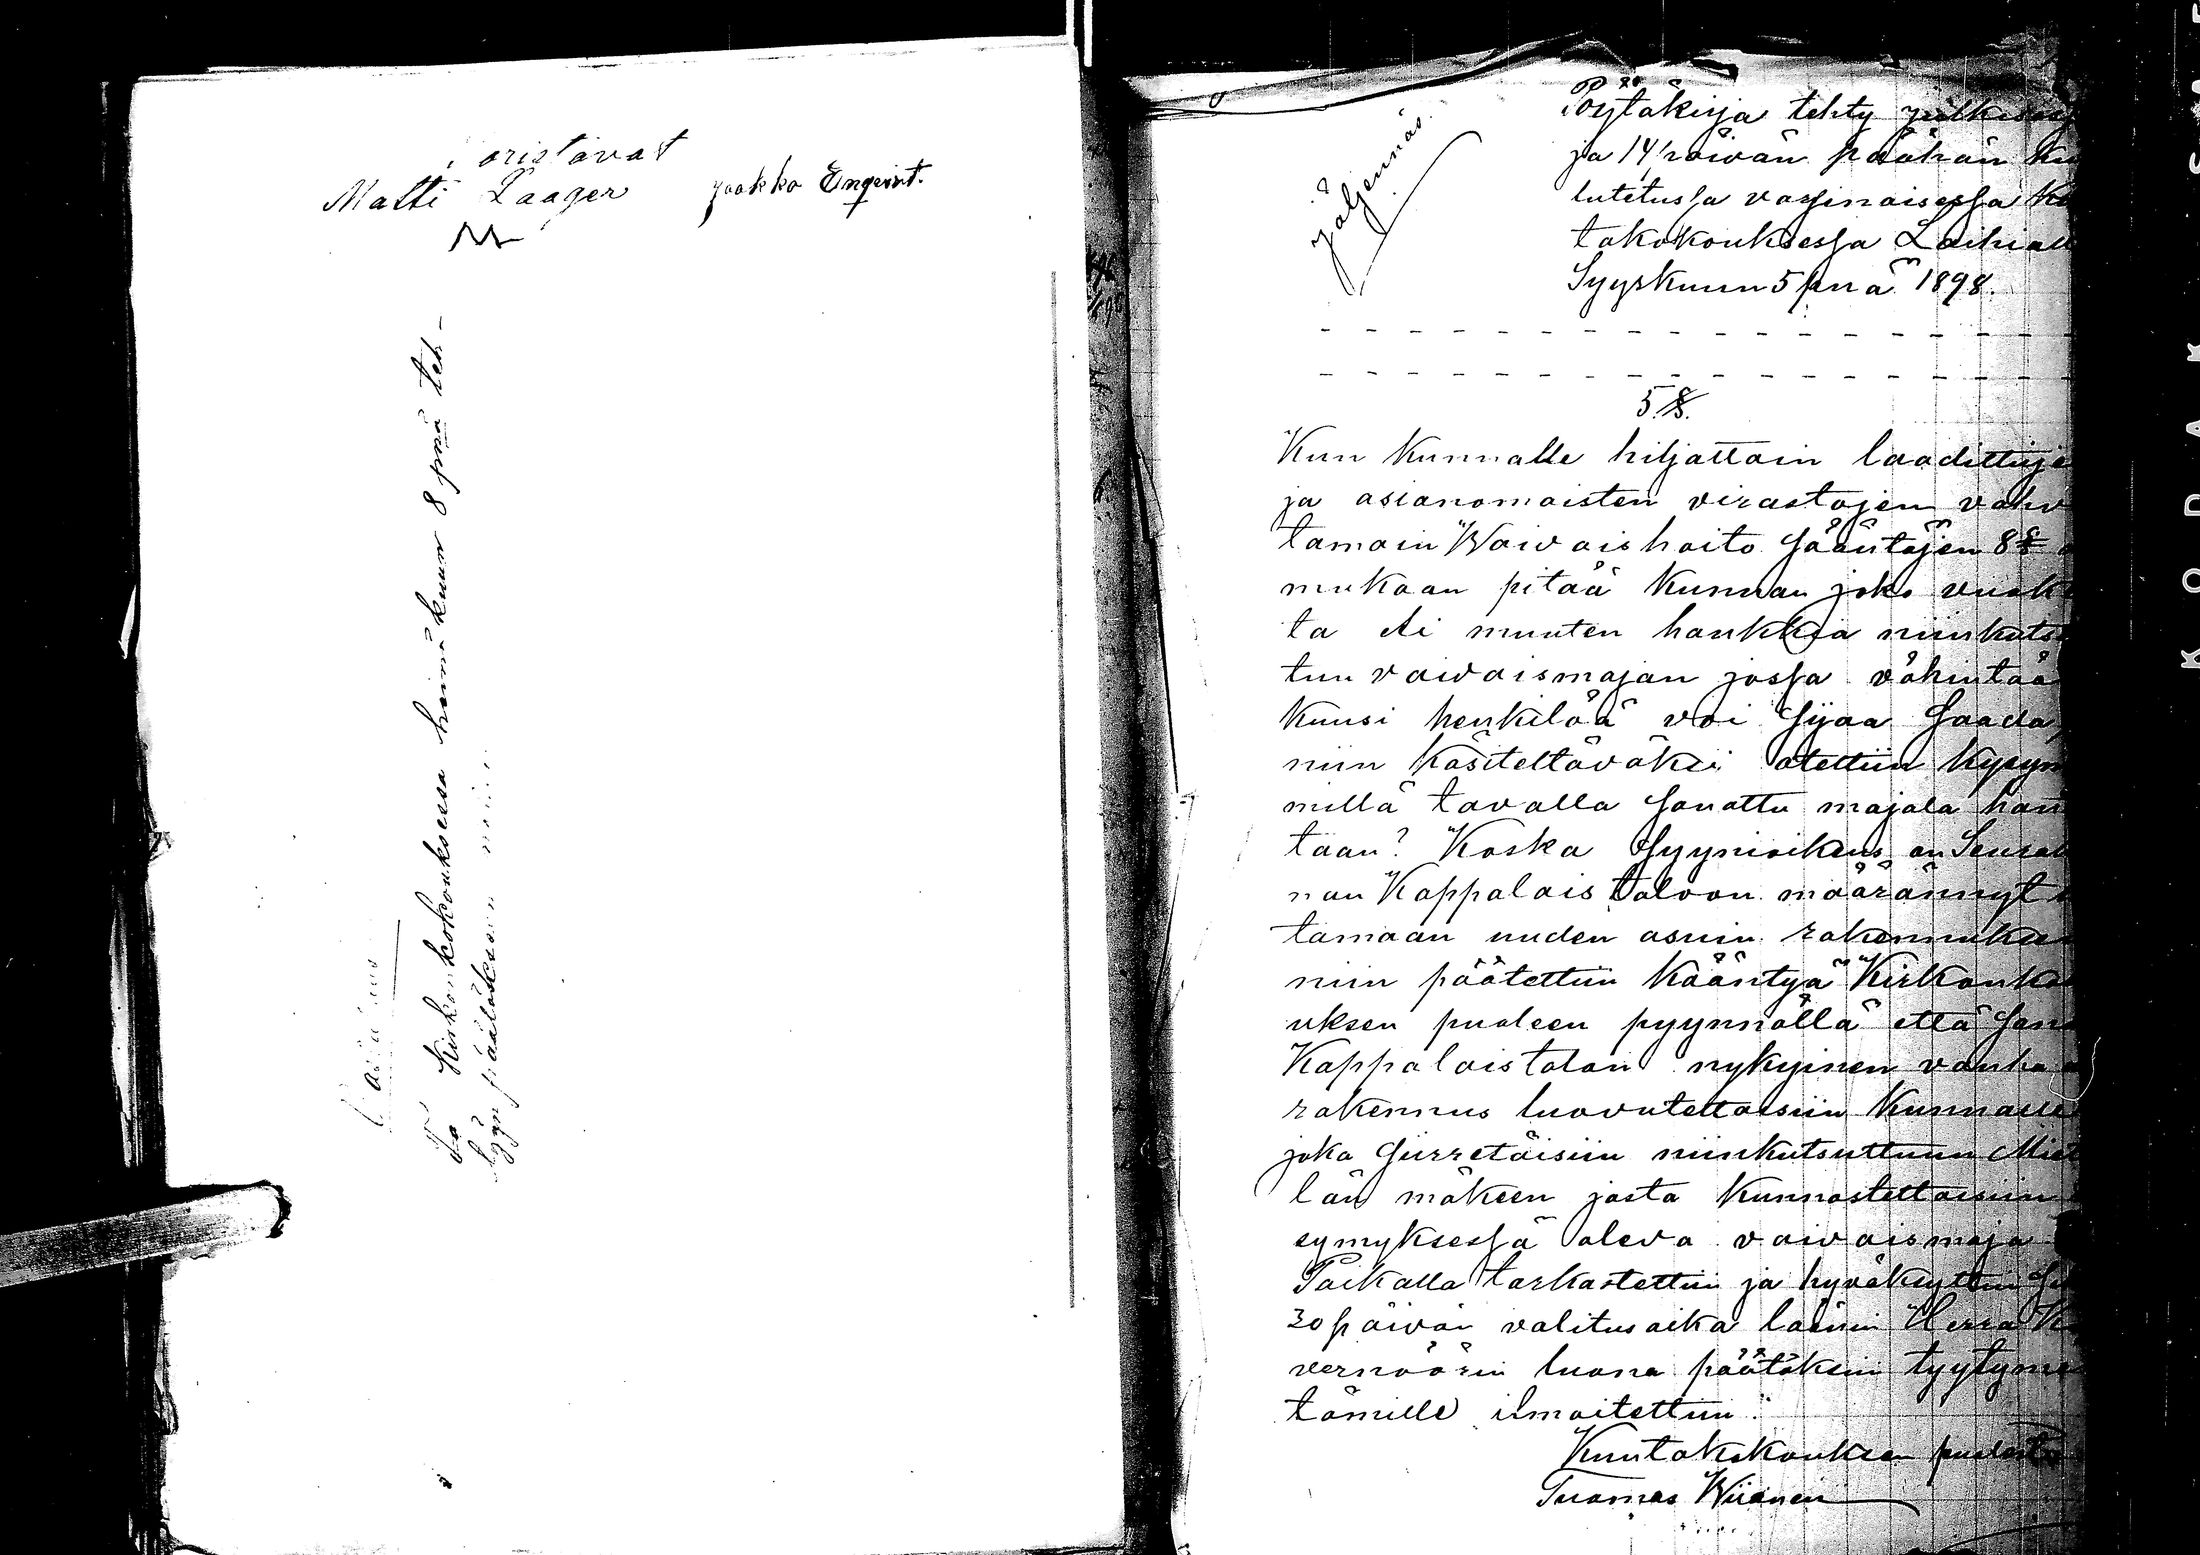 oristavat
Matti Laager Jaakko Enqvist.
Kirkonkokouksessa heinäkuun 8 pnä teh-
päätöksen
Jäljennös.
Pöytäkirja tehty julkises
ja 14 päivän päähän ku
lutetussa varsinaisessa Ku
takokouksessa Laihial
Syyskuun 5 pnä 1898.
5 §.
Kun Kunnalle hiljattain laadittuje
ja asianomaisten virastojen vahv
tamain Waivaishoito sääntöjen 8 §
mukaan pitää Kunnan joko vuok
ta eli muuten hankkia niinkuts
tun vaivaismajan jossa vähintää
Kuusi henkilöä voi sijaa saada,
niin käsiteltäväksi otettiin kysym
millä tavalla sanottu majala han
taan? Koska Syynioikeus on Seura
nan Kappalais taloon määrännyt
tamaan uuden asuin rakennuksen
niin päätettiin kääntyä Kirkonko
uksen puoleen pyynnöllä että san
Kappalaistalon nykyinen vanha
rakennus luovutettaisiin Kunnalle
joka siirretäisiin niinkutsuttuun Miet
län mäkeen josta Kunnostettaisiin
symyksessä oleva vaivaismaja
Paikalla tarkastettiin ja hyväksyttiin
30 päivän valitusaika läänin Herra K
vernöörin luona päätöksiin tyytymä
tömille ilmoitettiin.
Kuntakokouksen puolesta
Tuomas Wiianen